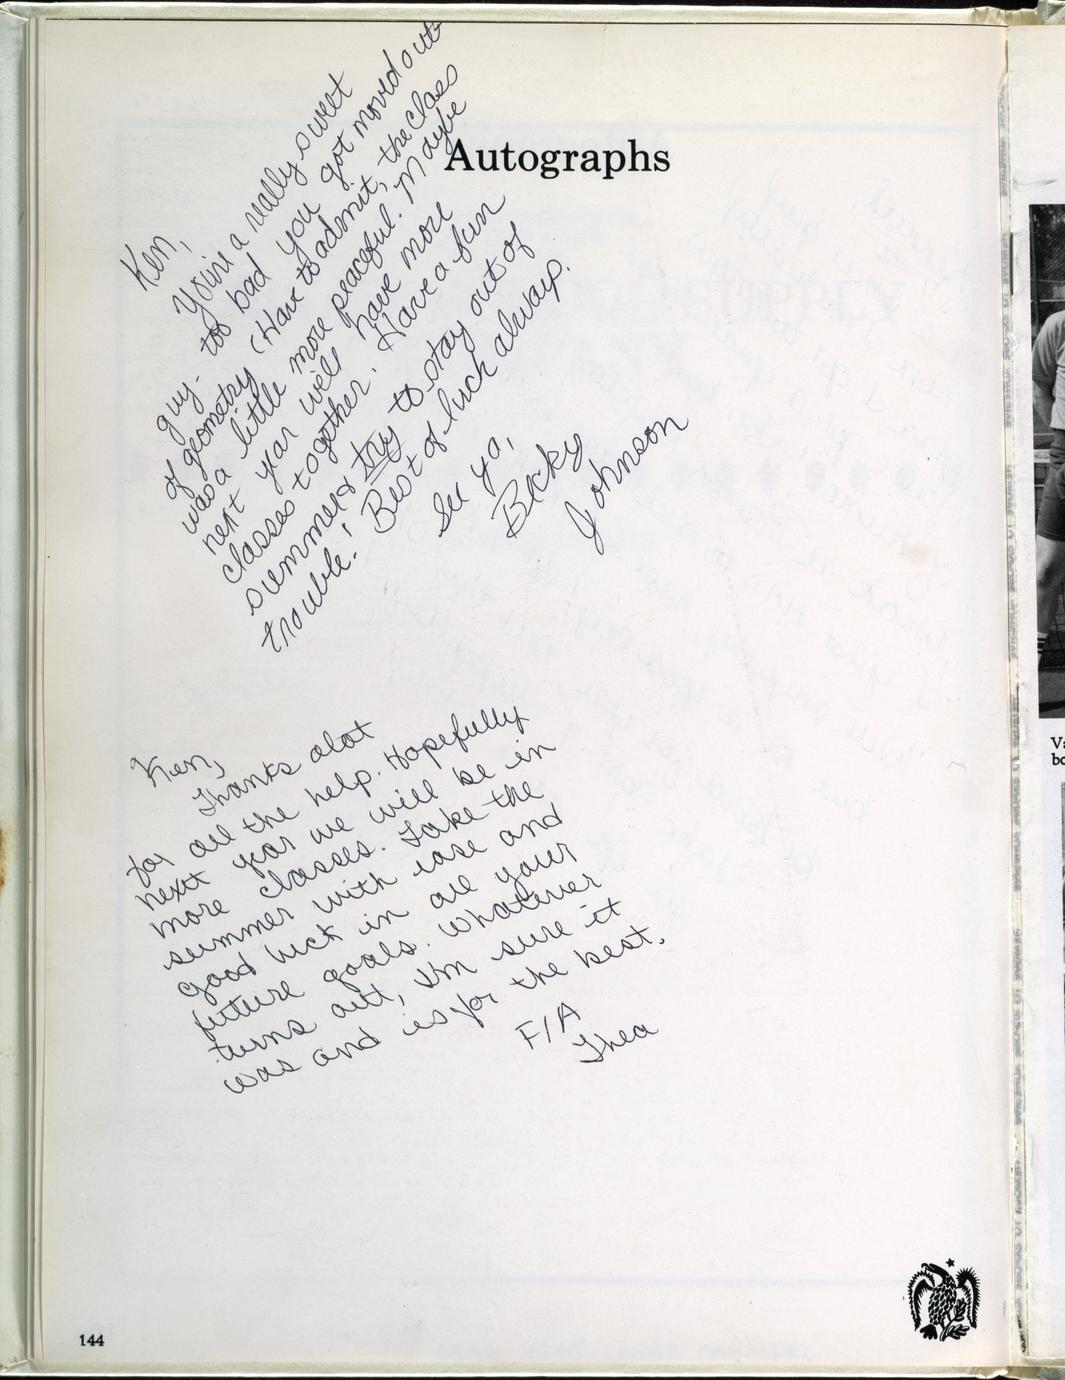 Autographs
Ken,
You're a really sweet
guy - too bad you got moved out
of geometry (Have to admit, the class
was a little more peaceful. Maybe
next year will have more
classes together. Have a fun
summer & try to stay out of
trouble! Best of luck always.
See ya,
Becky
Johnson
Ken,
Thanks alot
for all the help. Hopefully
next year we will be in
more classes. Take the
summer with ease and
good luck in all your
future goals. Whatever
turns out, I'm sure it
was and is for the best.
F/A
Thea
144